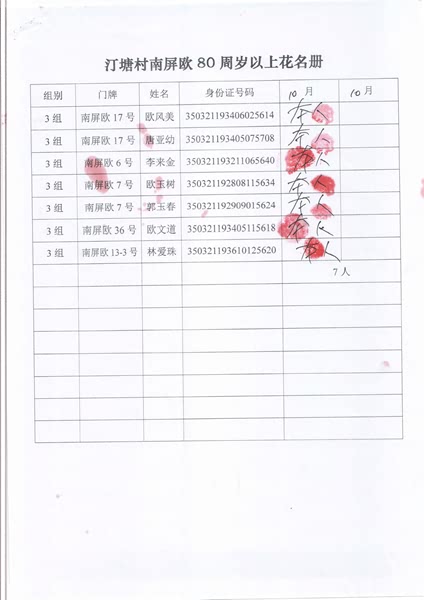 汀塘村南屏欧 80 周岁以上花名册
组别 门牌 姓名 身份证号码 10 月 10 月
3 组 南屏欧 17 号 欧风美 350321193406025614 本人
3 组 南屏欧 17 号 唐亚幼 350321193405075708 本人
3 组 南屏欧 6 号 李来金 350321193211065640 本人
3 组 南屏欧 7 号 欧玉树 350321192808115634 本人
3 组 南屏欧 7 号 郭玉春 350321192909015624 本人
3 组 南屏欧 36 号 欧文道 350321193405115618 本人
3 组 南屏欧 13-3 号 林爱珠 350321193610125620 本人
7 人